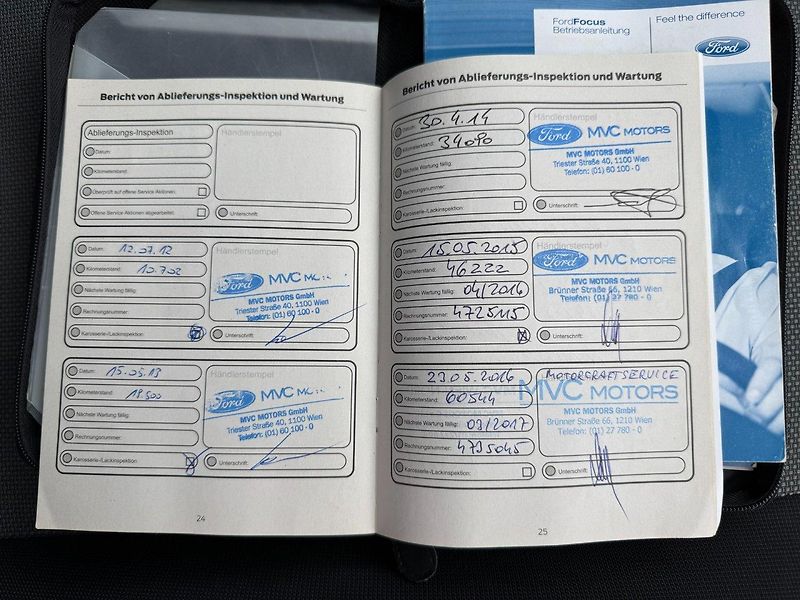 FordFocus
Betriebsanleitung
Feel the difference
Ford
Bericht von Ablieferungs-Inspektion und Wartung
Ablieferungs-Inspektion
Händlerstempel
Datum:
Kilometerstand:
Überprüft auf offene Service Aktionen:
Offene Service Aktionen abgearbeitet:
Unterschrift:
Datum: 12.07.12
Händlerstempel
Kilometerstand: 10.702
Ford MVC
Nächste Wartung fällig:
MVC MOTORS GmbH
Triester Straße 40, 1100 Wien
Rechnungsnummer:
Telefon: (01) 60 100 - 0
Karosserie-/Lackinspektion:
Unterschrift:
Datum: 15.05.13
Händlerstempel
Kilometerstand: 19.500
Ford MVC
Nächste Wartung fällig:
MVC MOTORS GmbH
Triester Straße 40, 1100 Wien
Rechnungsnummer:
Telefon: (01) 60 100 - 0
Karosserie-/Lackinspektion:
Unterschrift:
24
Bericht von Ablieferungs-Inspektion und Wartung
Datum: 30.4.14
Händlerstempel
Kilometerstand: 34090
Ford MVC MOTORS
Nächste Wartung fällig:
MVC MOTORS GmbH
Triester Straße 40, 1100 Wien
Telefon: (01) 60 100 - 0
Rechnungsnummer:
Karosserie-/Lackinspektion:
Unterschrift:
Datum: 15.05.2015
Händlerstempel
Kilometerstand: 46222
Ford MVC MOTORS
Nächste Wartung fällig: 04/2016
MVC MOTORS GmbH
Brünner Straße 66, 1210 Wien
Telefon: (01) 27 780 - 0
Rechnungsnummer: 4725115
Karosserie-/Lackinspektion:
Unterschrift:
Datum: 23.05.2016
MOTORCRAFTSERVICE
Kilometerstand: 60544
MVC MOTORS
Nächste Wartung fällig: 03/2017
MVC MOTORS GmbH
Brünner Straße 66, 1210 Wien
Telefon: (01) 27 780 - 0
Rechnungsnummer: 4795045
Karosserie-/Lackinspektion:
Unterschrift:
25